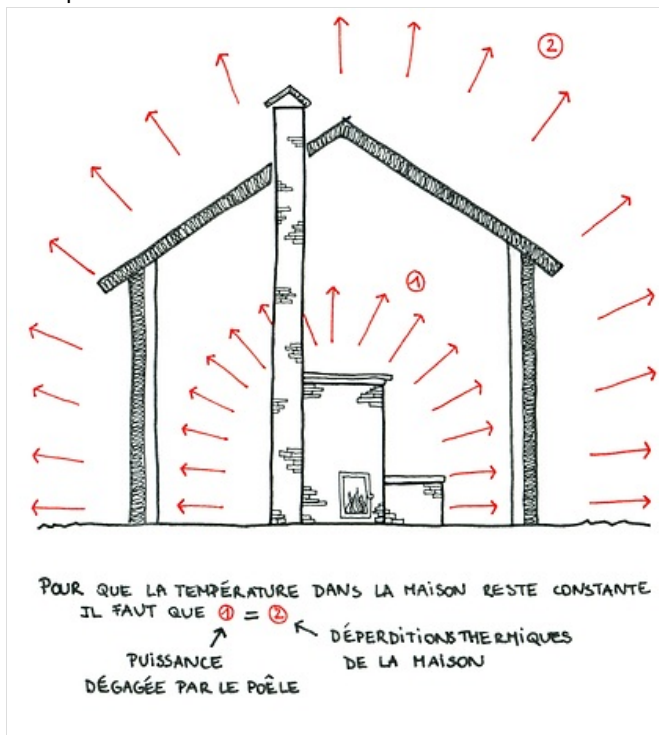 ②
①
POUR QUE LA TEMPÉRATURE DANS LA MAISON RESTE CONSTANTE
IL FAUT QUE ① = ②
PUISSANCE
DÉGAGÉE PAR LE POÊLE
DÉPERDITIONS THERMIQUES
DE LA MAISON